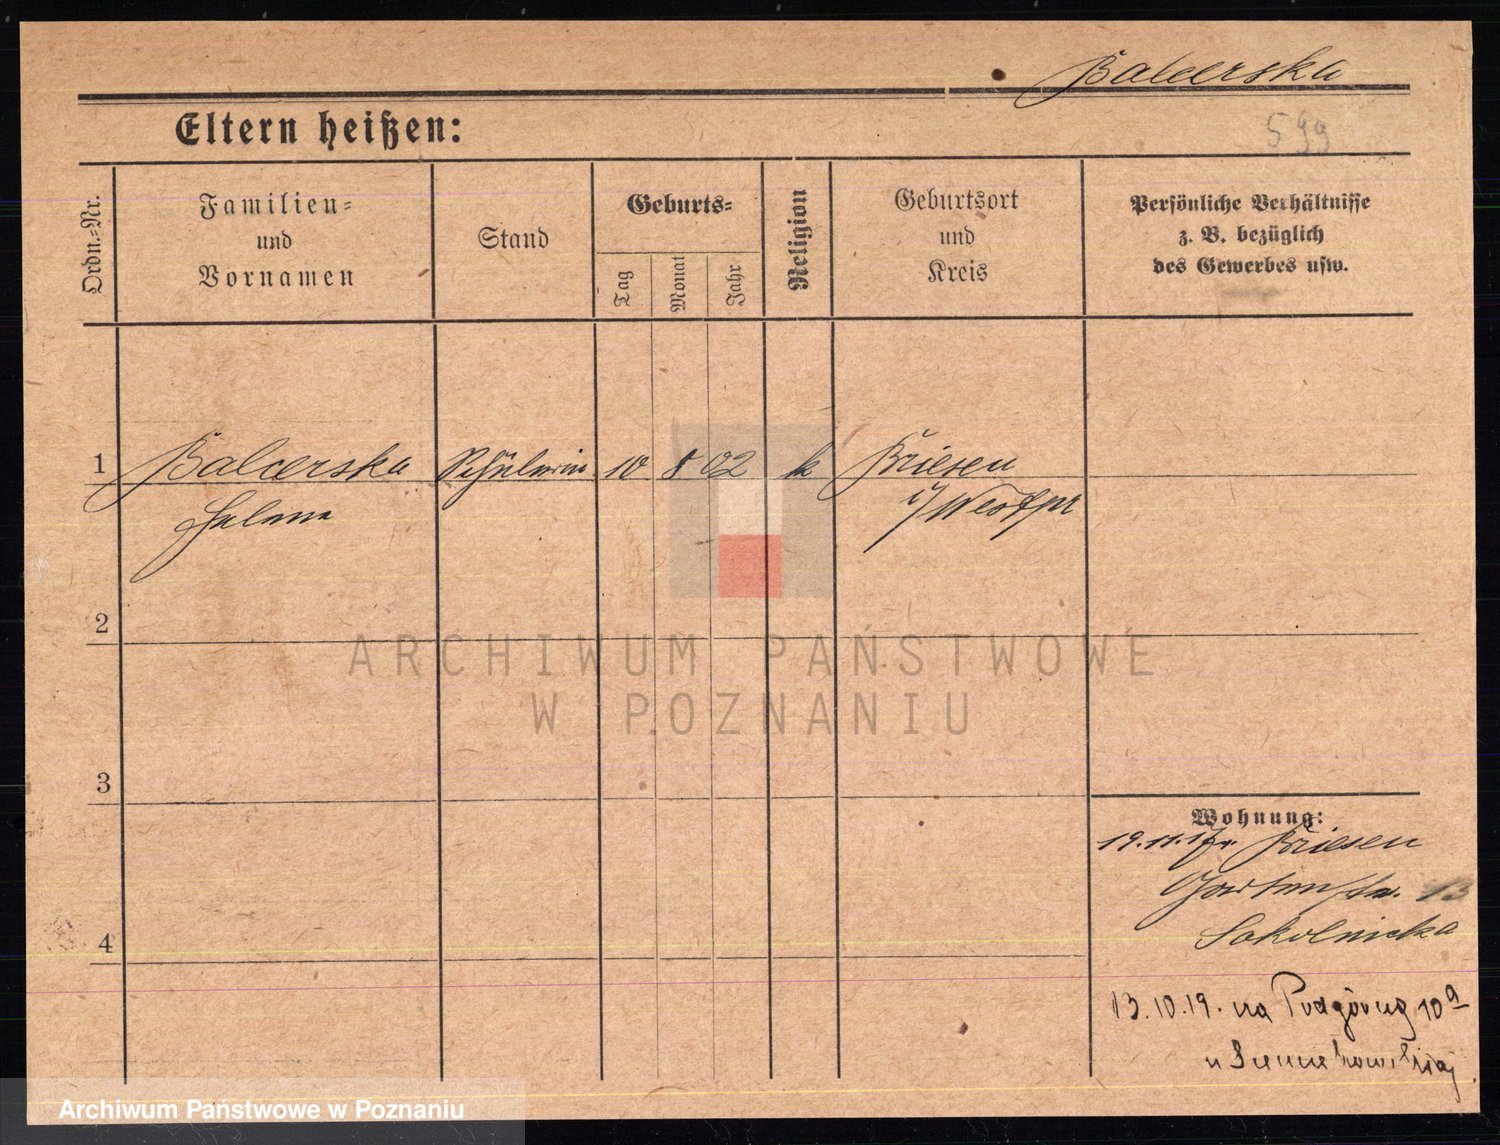 Balcerska
599
Eltern heißen:
Ordn.-Nr.
Familien-
und
Vornamen
Stand
Geburts-
Tag
Monat
Jahr
Religion
Geburtsort
und
Kreis
Persönliche Verhältnisse
z. B. bezüglich
des Gewerbes usw.
1 Balcerska Schülerin 10 8 02 k Briesen
Helene i/Westpr
2
3
4
Wohnung:
19.11.17 Briesen
Gartenstr. 13
Sokolnicka
13.10.19. na Podgórną 10a
u
ARCHIWUM PAŃSTWOWE
W POZNANIU
Archiwum Państwowe w Poznaniu